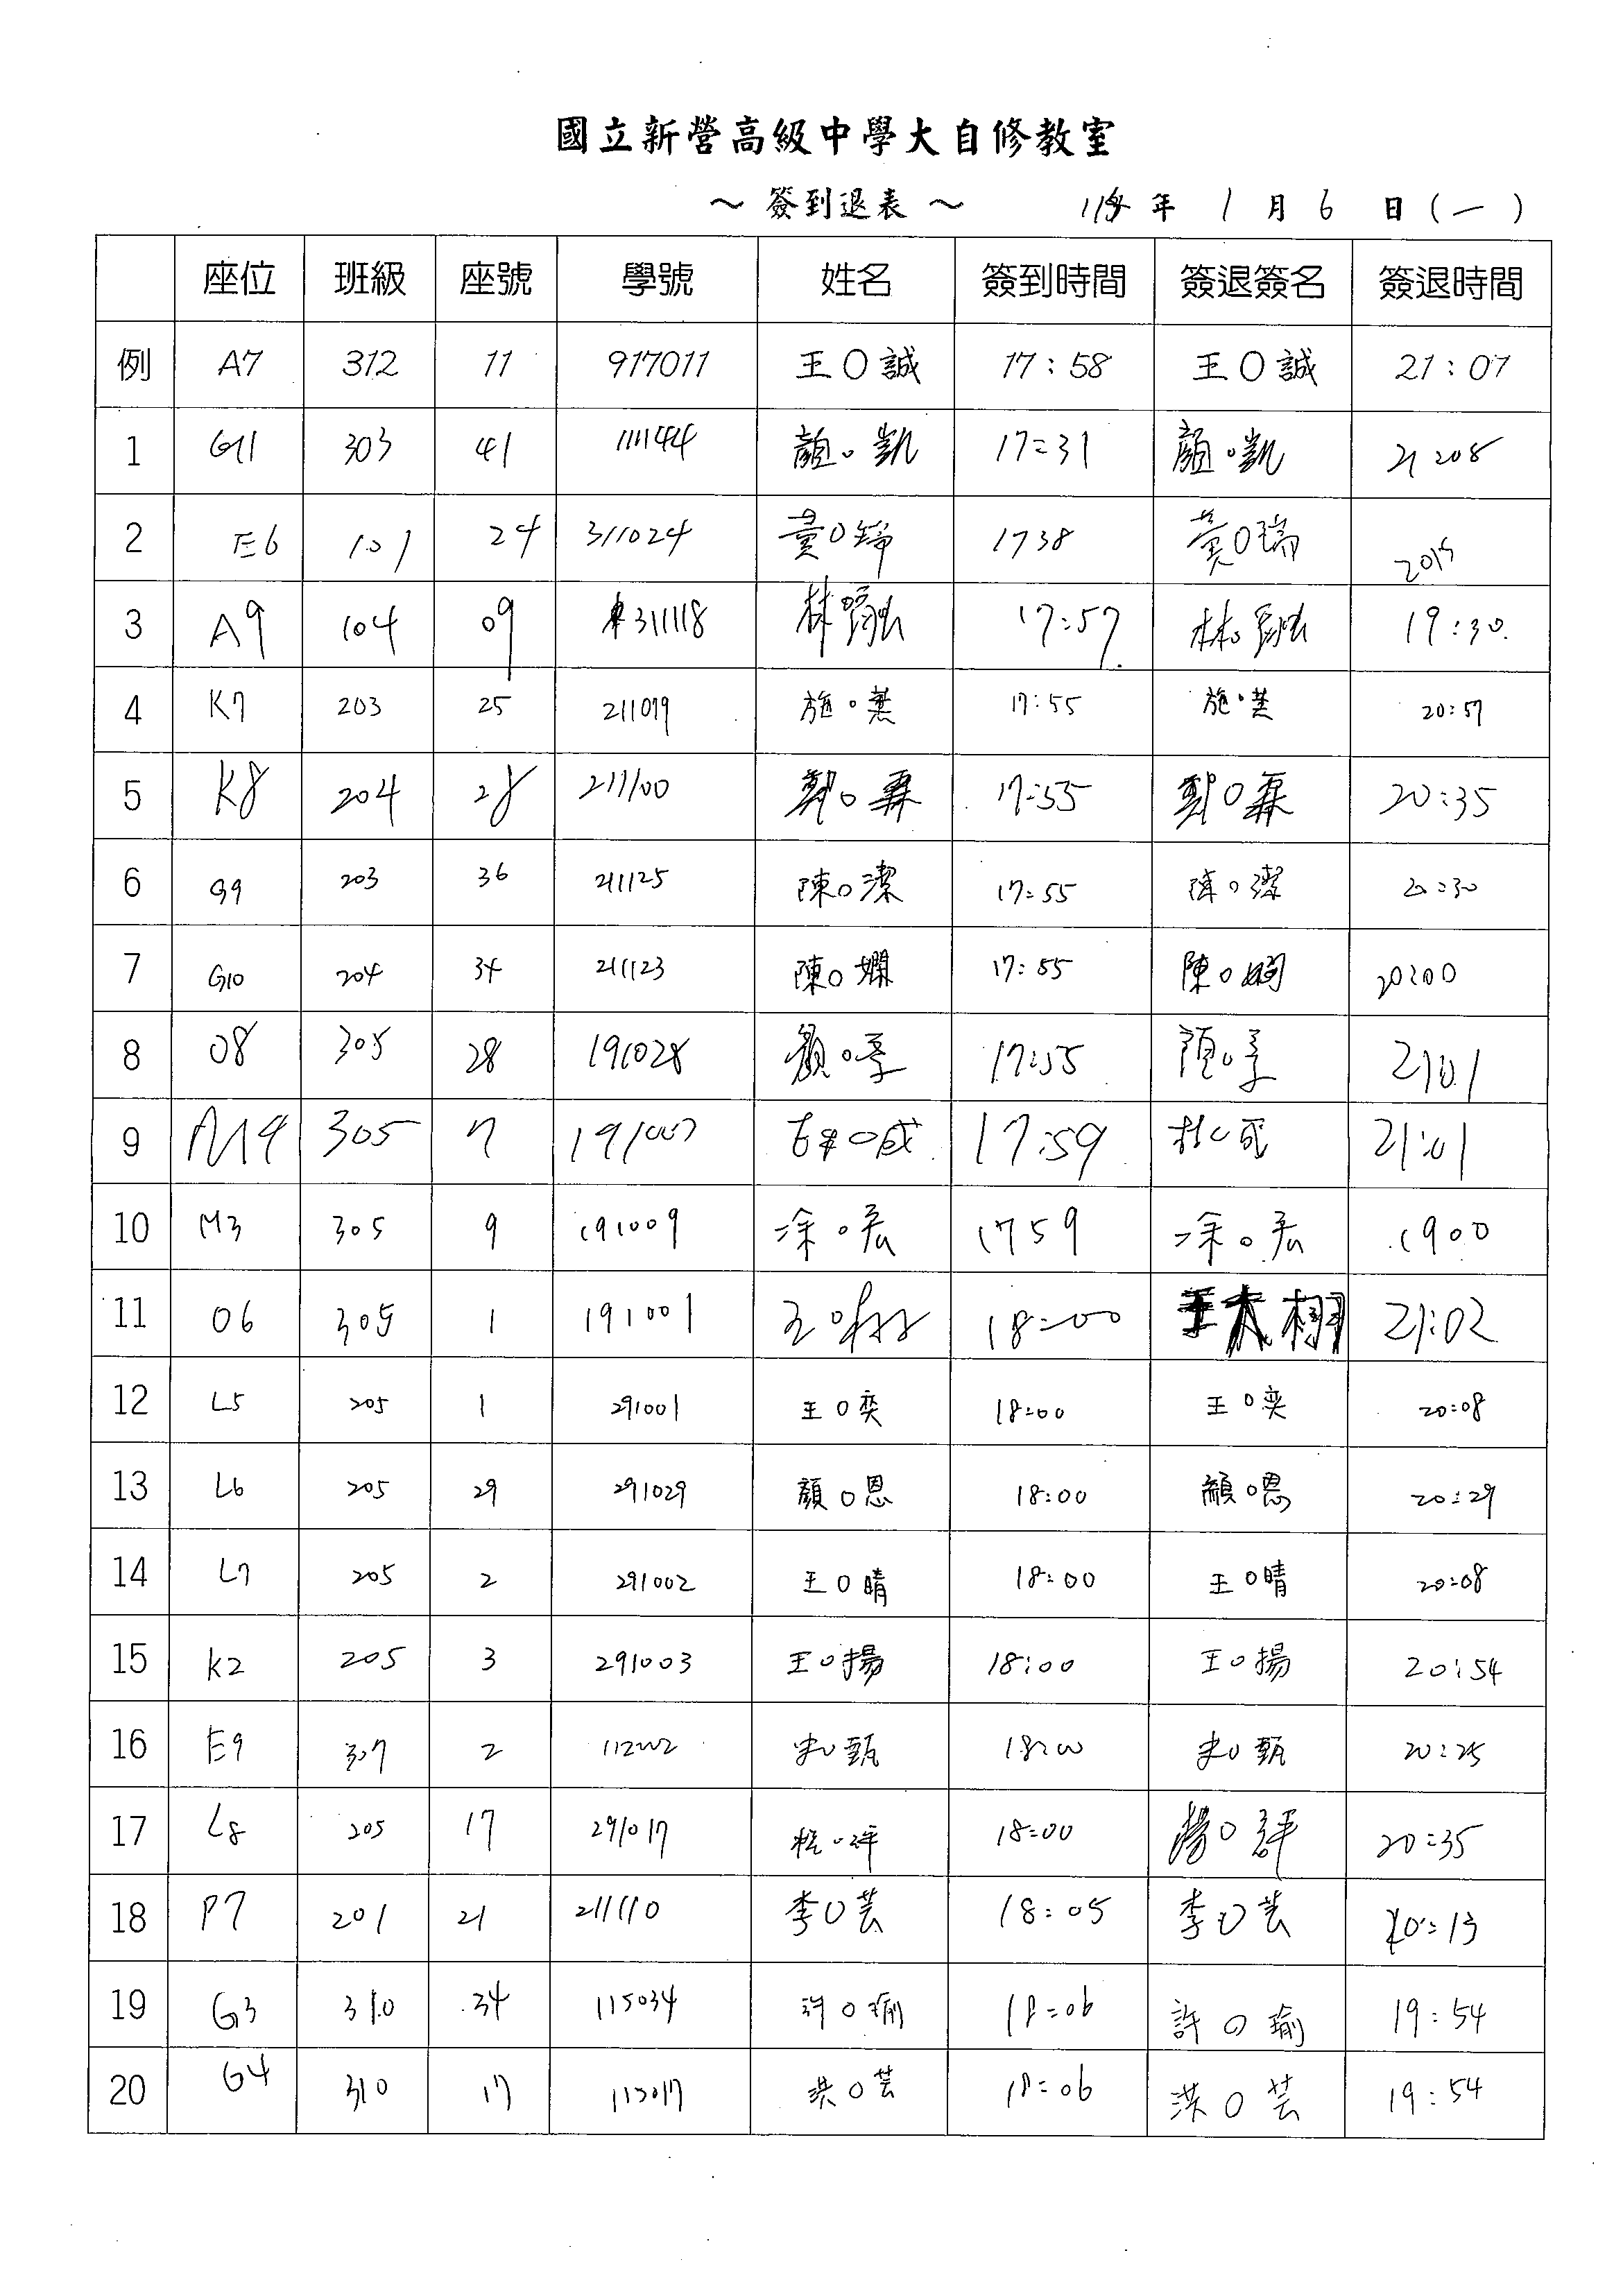 國立新營高級中學大自修教室
～ 簽到退表 ～ 114 年 1 月 6 日 (一)
座位 班級 座號 學號 姓名 簽到時間 簽退簽名 簽退時間
例 A7 312 11 917011 王〇誠 17:58 王〇誠 21:07
1 G11 303 41 111144 顏。凱 17:31 顏。凱 21:08
2 E6 101 24 311024 黃〇 1738 黃〇瑞 2015
3 A9 104 09 311118 林 17:57 林 19:30
4 K7 203 25 211079 施。 17:55 施。 20:57
5 K8 204 28 211100 鄭〇 17:55 鄭〇 20:35
6 G9 203 36 211125 陳〇潔 17:55 陳〇潔 20:30
7 G10 204 34 211123 陳〇嫻 17:55 陳〇嫻 20:00
8 O8 305 28 191028 顏〇 17:55 顏〇 21:01
9 M4 305 7 191007 杜〇成 17:59 杜〇成 21:01
10 M3 305 9 191009 涂。宏 1759 涂。宏 1900
11 O6 305 1 191001 王〇栩 18:00 王 栩 21:02
12 L5 205 1 291001 王〇奕 18:00 王〇奕 20:08
13 L6 205 29 291029 顏〇恩 18:00 顏〇恩 20:29
14 L7 205 2 291002 王〇晴 18:00 王〇晴 20:08
15 K2 205 3 291003 王〇揚 18:00 王〇揚 20:54
16 E9 307 2 112002 〇甄 18:00 〇甄 20:25
17 L8 205 17 291017 〇評 18:00 〇評 20:35
18 P7 201 21 211110 李〇芸 18:05 李〇芸 20:13
19 G3 310 34 115034 許〇瑜 18:06 許〇瑜 19:54
20 G4 310 17 115017 洪〇芸 18:06 洪〇芸 19:54